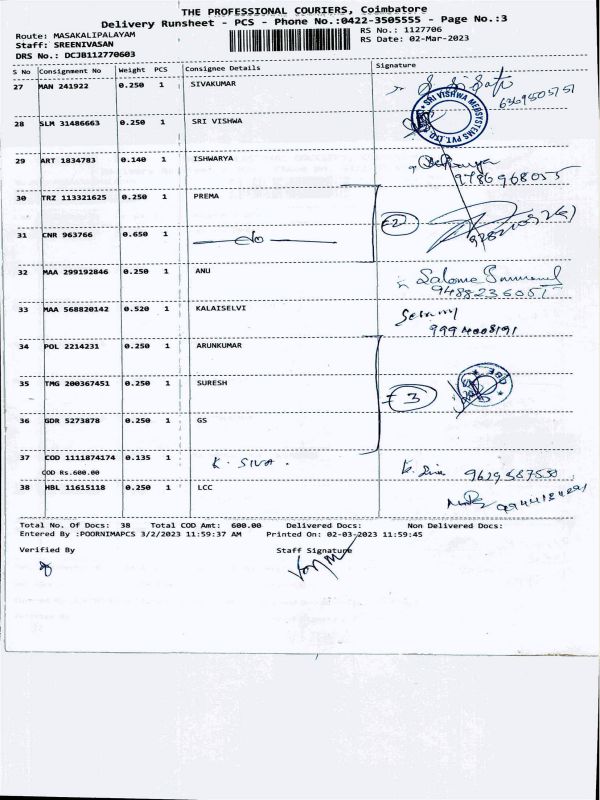 THE PROFESSIONAL COURIERS, Coimbatore
Delivery Runsheet - PCS - Phone No.:0422-3505555 - Page No.:3
Route: MASAKALIPALAYAM
RS No.: 1127706
Staff: SREENIVASAN
RS Date: 02-Mar-2023
DRS No.: DCJB112770603
S No Consignment No Weight PCS Consignee Details Signature
27 MAN 241922 0.250 1 SIVAKUMAR
6369505757
28 SLM 31486663 0.250 1 SRI VISHWA
SRI VISHWA MERSYSTEMS PVT. LTD.
29 ART 1834783 0.140 1 ISHWARYA
9786968055
30 TRZ 113321625 0.250 1 PREMA
31 CNR 963766 0.650 1 do
32 MAA 299192846 0.250 1 ANU Salome
9488236051
33 MAA 568820142 0.520 1 KALAISELVI
9994008191
34 POL 2214231 0.250 1 ARUNKUMAR
35 TMG 200367451 0.250 1 SURESH
3
36 GDR 5273878 0.250 1 GS
37 COD 1111874174 0.135 1 K. SIVA. K. Siva 9629587550
COD Rs.600.00
38 HBL 11615118 0.250 1 LCC
Total No. Of Docs: 38 Total COD Amt: 600.00 Delivered Docs: Non Delivered Docs:
Entered By :POORNIMAPCS 3/2/2023 11:59:37 AM Printed On: 02-03-2023 11:59:45
Verified By Staff Signature